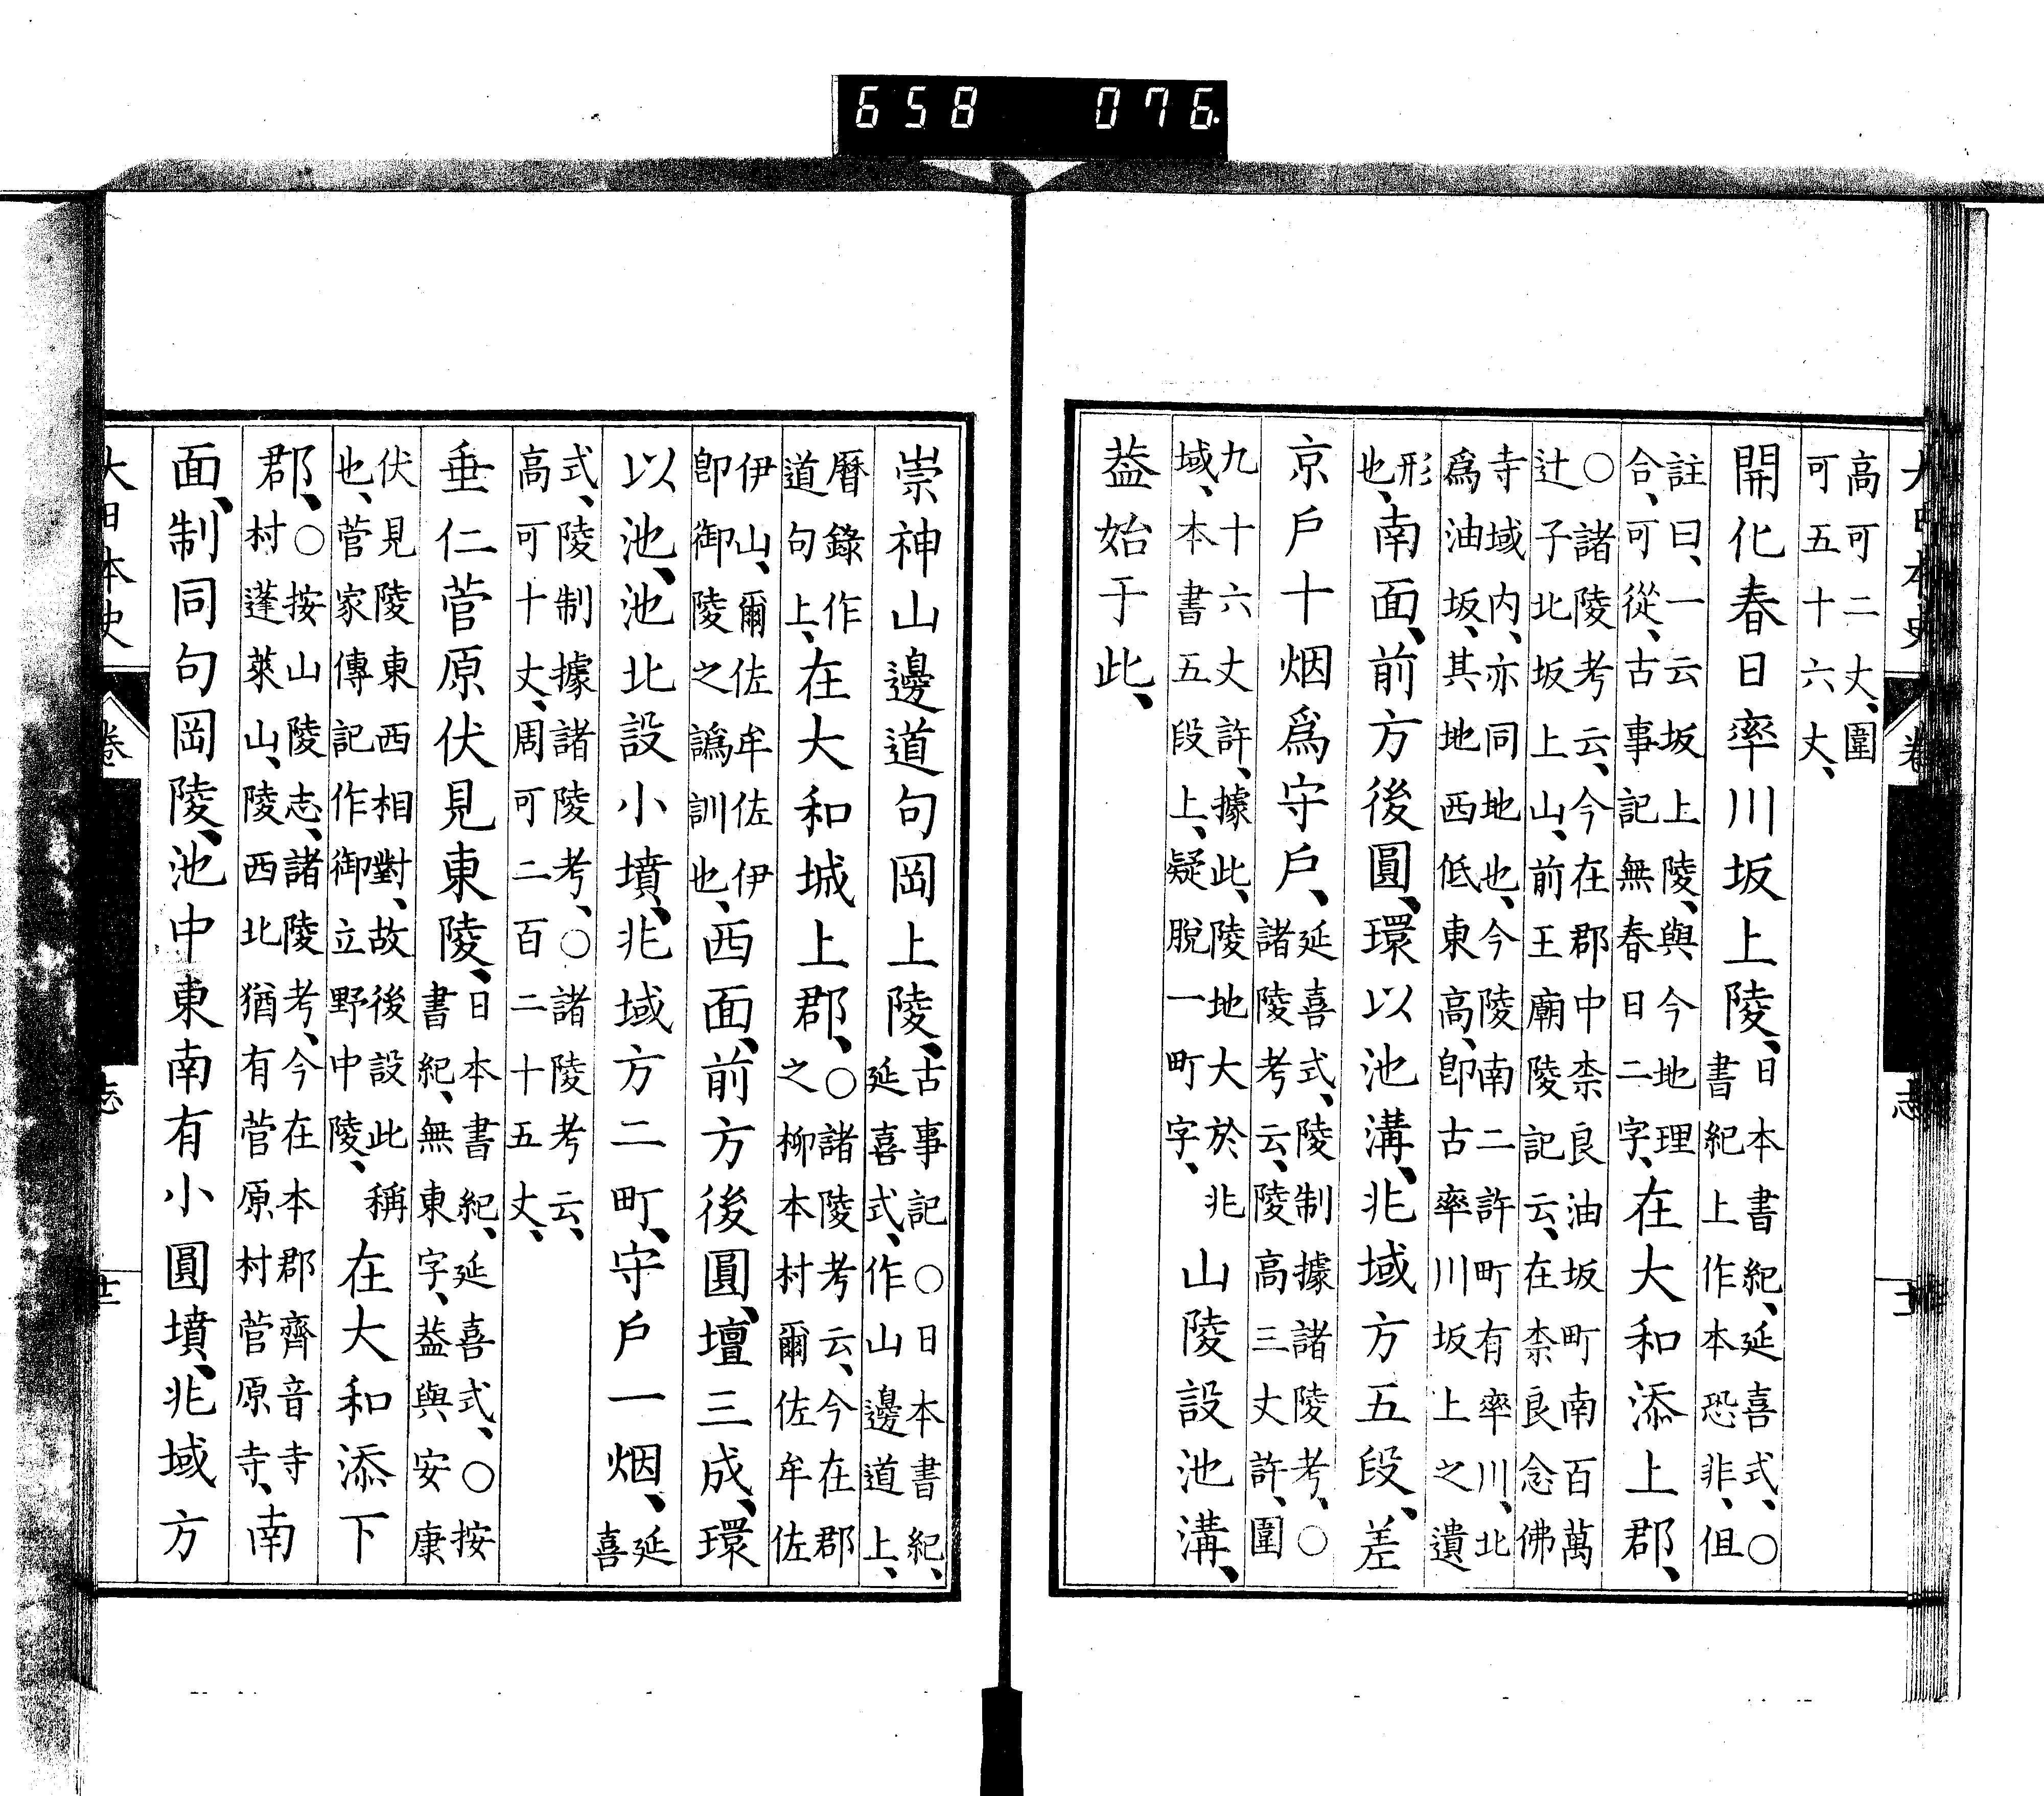 658 076
大日本史 卷 志
高可二丈、圍
可五十六丈、
開化春日率川坂上陵、日本書紀、延喜式、○書紀上作本恐非、但
註曰、一云坂上陵、與今地理合、可從、古事記無春日二字、在大和添上郡、
○諸陵考云、今在郡中柰良油坂町南百萬
辻子北坂上山、前王廟陵記云、在柰良念佛
寺域内、亦同地也、今陵南二許町有率川、北
爲油坂、其地西低東高、卽古率川坂上之遺
形也、南面、前方後圓、環以池溝、兆域方五段、差
京戶十烟爲守戶、延喜式、陵制據諸陵考、○諸陵考云、陵高三丈許、圍
九十六丈許、據此、陵地大於兆域、本書五段上、疑脫一町字、山陵設池溝、
葢始于此、
崇神山邊道句岡上陵、古事記○日本書紀、延喜式、作山邊道上、
曆錄作道句上、在大和城上郡、○諸陵考云、今在郡之柳本村爾佐牟佐
伊山、爾佐牟佐伊卽御陵之譌訓也、西面、前方後圓、壇三成、環
以池、池北設小墳、兆域方二町、守戶一烟、延喜
式、陵制據諸陵考、○諸陵考云、
高可十丈、周可二百二十五丈、
垂仁菅原伏見東陵、日本書紀、延喜式、○按書紀、無東字、葢與安康
伏見陵東西相對、故後設此稱也、菅家傳記作御立野中陵、在大和添下
郡、○按山陵志、諸陵考、今在本郡齊音寺村蓬萊山、陵西北猶有菅原村菅原寺、南
面、制同句岡陵、池中東南有小圓墳、兆域方
大日本史 卷 志